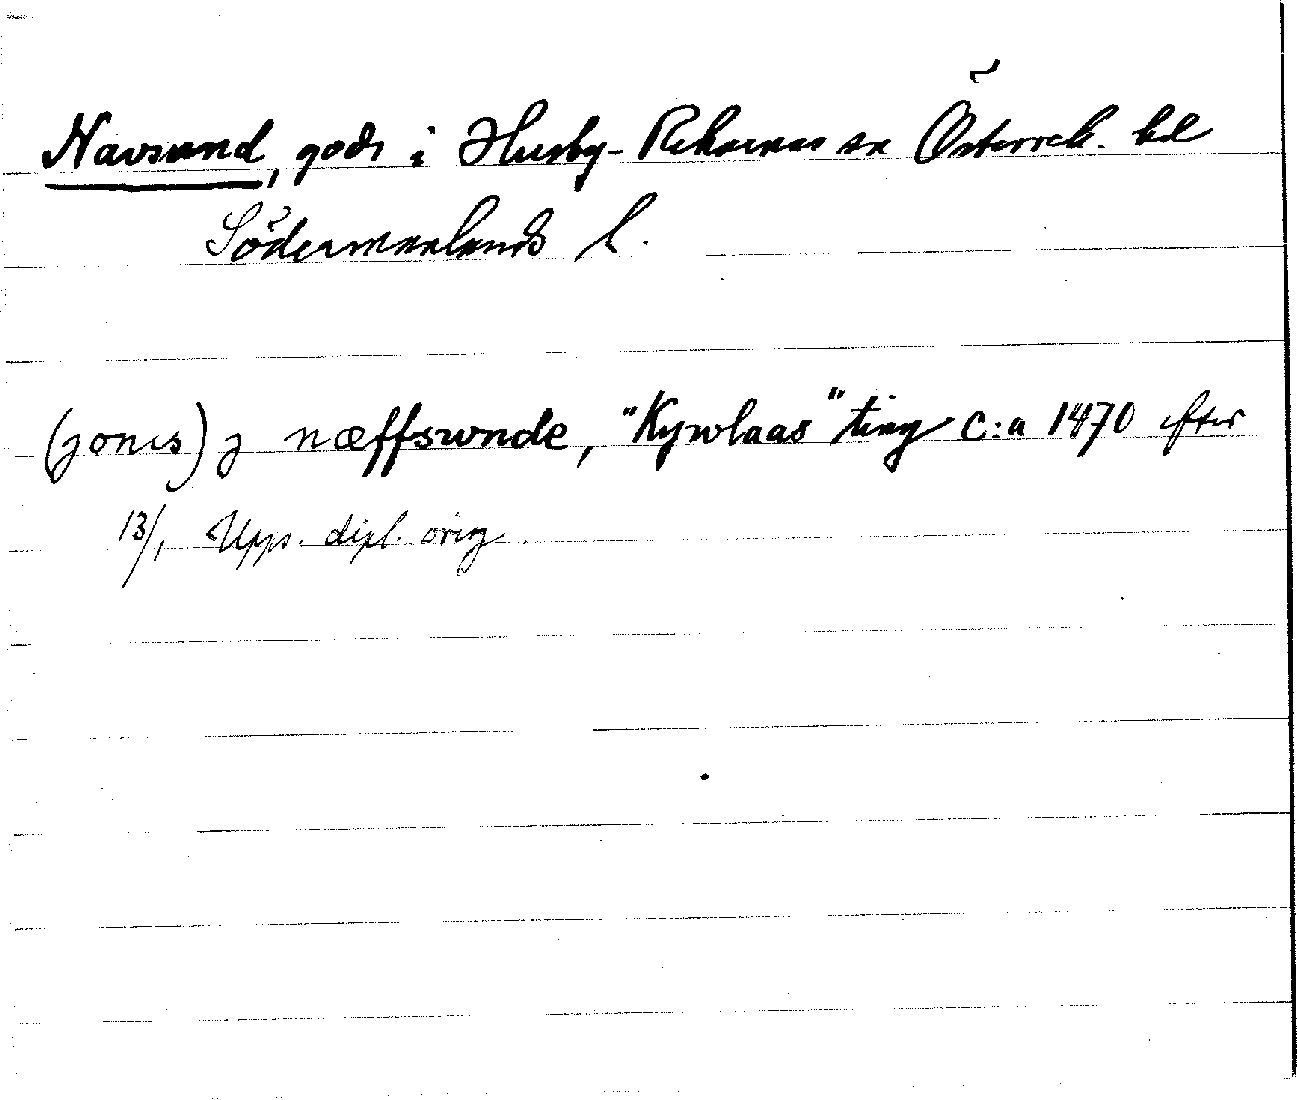 Navsund, gods i Husby-Rekarnes sn Österrek. hd
Södermanlands l.
(jonis) j næffswnde, "Kywlaas" ting c:a 1470 efter
13/1 Upps. dipl. orig.